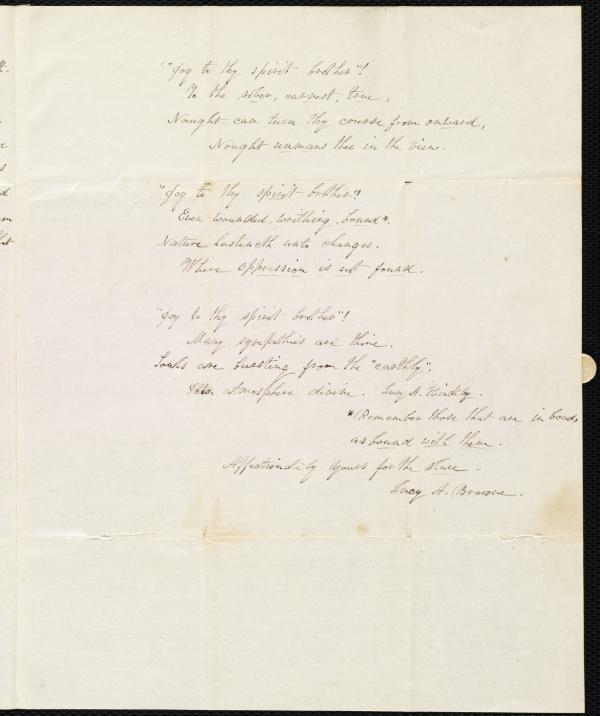 "Joy to thy spirit brother"!
To the sober, earnest, true,
Nought can turn thy course from onward,
Nought unmans thee in the view.
"Joy to thy spirit brother"!
Even wounded, writhing, bound*.
Nature hasteneth unto changes.
Where oppression is not found.
"Joy to thy spirit brother"!
Many sympathies are thine.
Souls are bursting from the "earthly".
atmosphere divine. Lucy A.
*(Remember those that are in bonds
as bound with them.
Affectionately yours for the slave -
Lucy A. Browne.